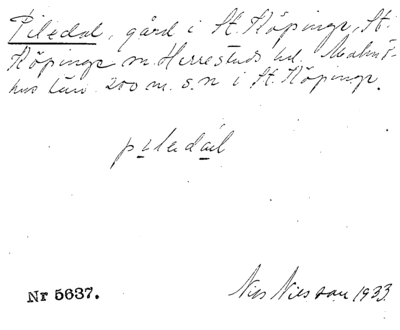 Piledal, gård i St. Köpinge, St.
Köpinge sn Herrestads hd. Malmö-
hus län. 200 m. s. n i St. Köpinge.
piledal
Nr 5637.
Nils Nilsson 1933.